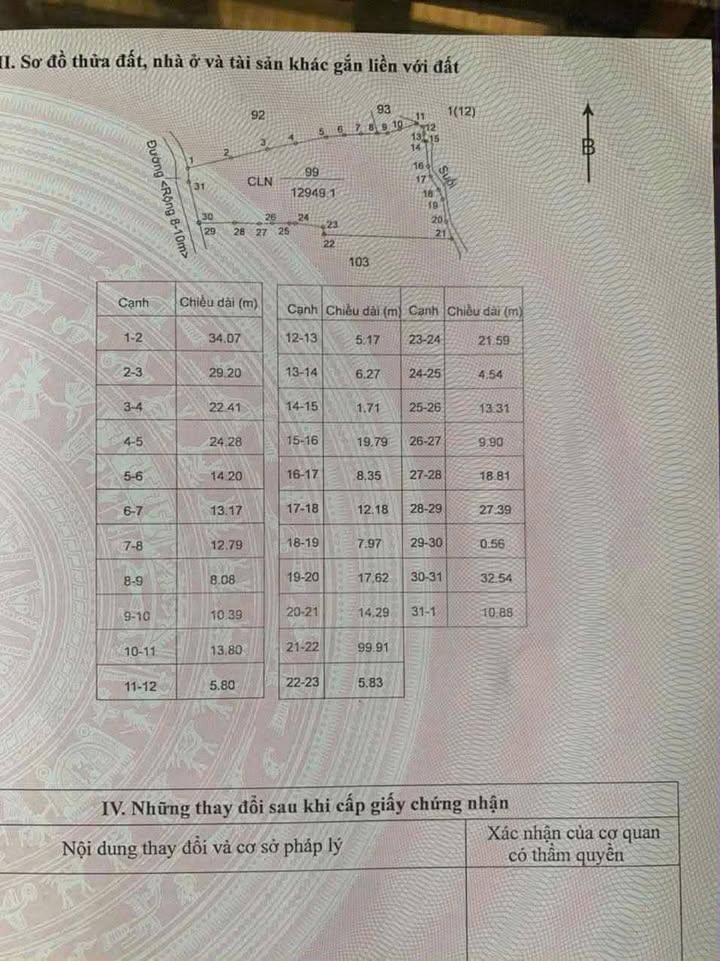 II. Sơ đồ thửa đất, nhà ở và tài sản khác gắn liền với đất
92
93
1(12)
11
12
10
9
8
7
6
5
4
3
2
1
13
15
14
B
Đường <Rộng 8-10m>
CLN
99
12949.1
31
16
17
Suối
18
19
20
21
30
29
28
27
26
25
24
23
22
103
Cạnh Chiều dài (m) Cạnh Chiều dài (m) Cạnh Chiều dài (m)
1-2 34.07 12-13 5.17 23-24 21.59
2-3 29.20 13-14 6.27 24-25 4.54
3-4 22.41 14-15 1.71 25-26 13.31
4-5 24.28 15-16 19.79 26-27 9.90
5-6 14.20 16-17 8.35 27-28 18.81
6-7 13.17 17-18 12.18 28-29 27.39
7-8 12.79 18-19 7.97 29-30 0.56
8-9 8.08 19-20 17.62 30-31 32.54
9-10 10.39 20-21 14.29 31-1 10.88
10-11 13.80 21-22 99.91
11-12 5.80 22-23 5.83
IV. Những thay đổi sau khi cấp giấy chứng nhận
Nội dung thay đổi và cơ sở pháp lý
Xác nhận của cơ quan
có thẩm quyền